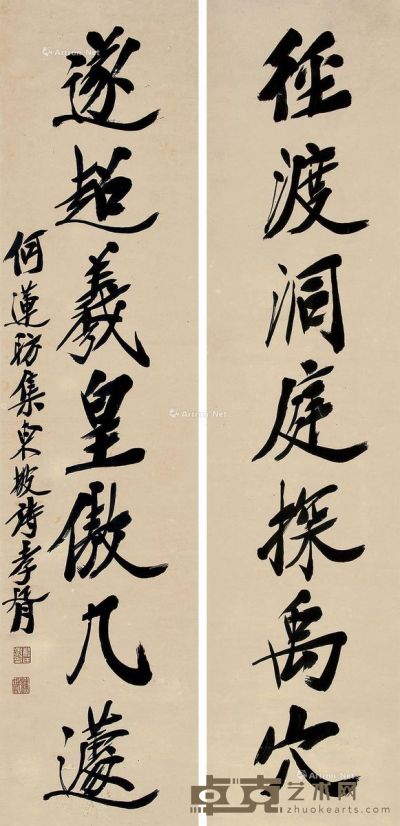 径渡洞庭探禹穴
遂超羲皇傲几蘧
何蓮舫集東坡詩孝胥
Artron.Net
卓克艺术网
zhuokearts.com